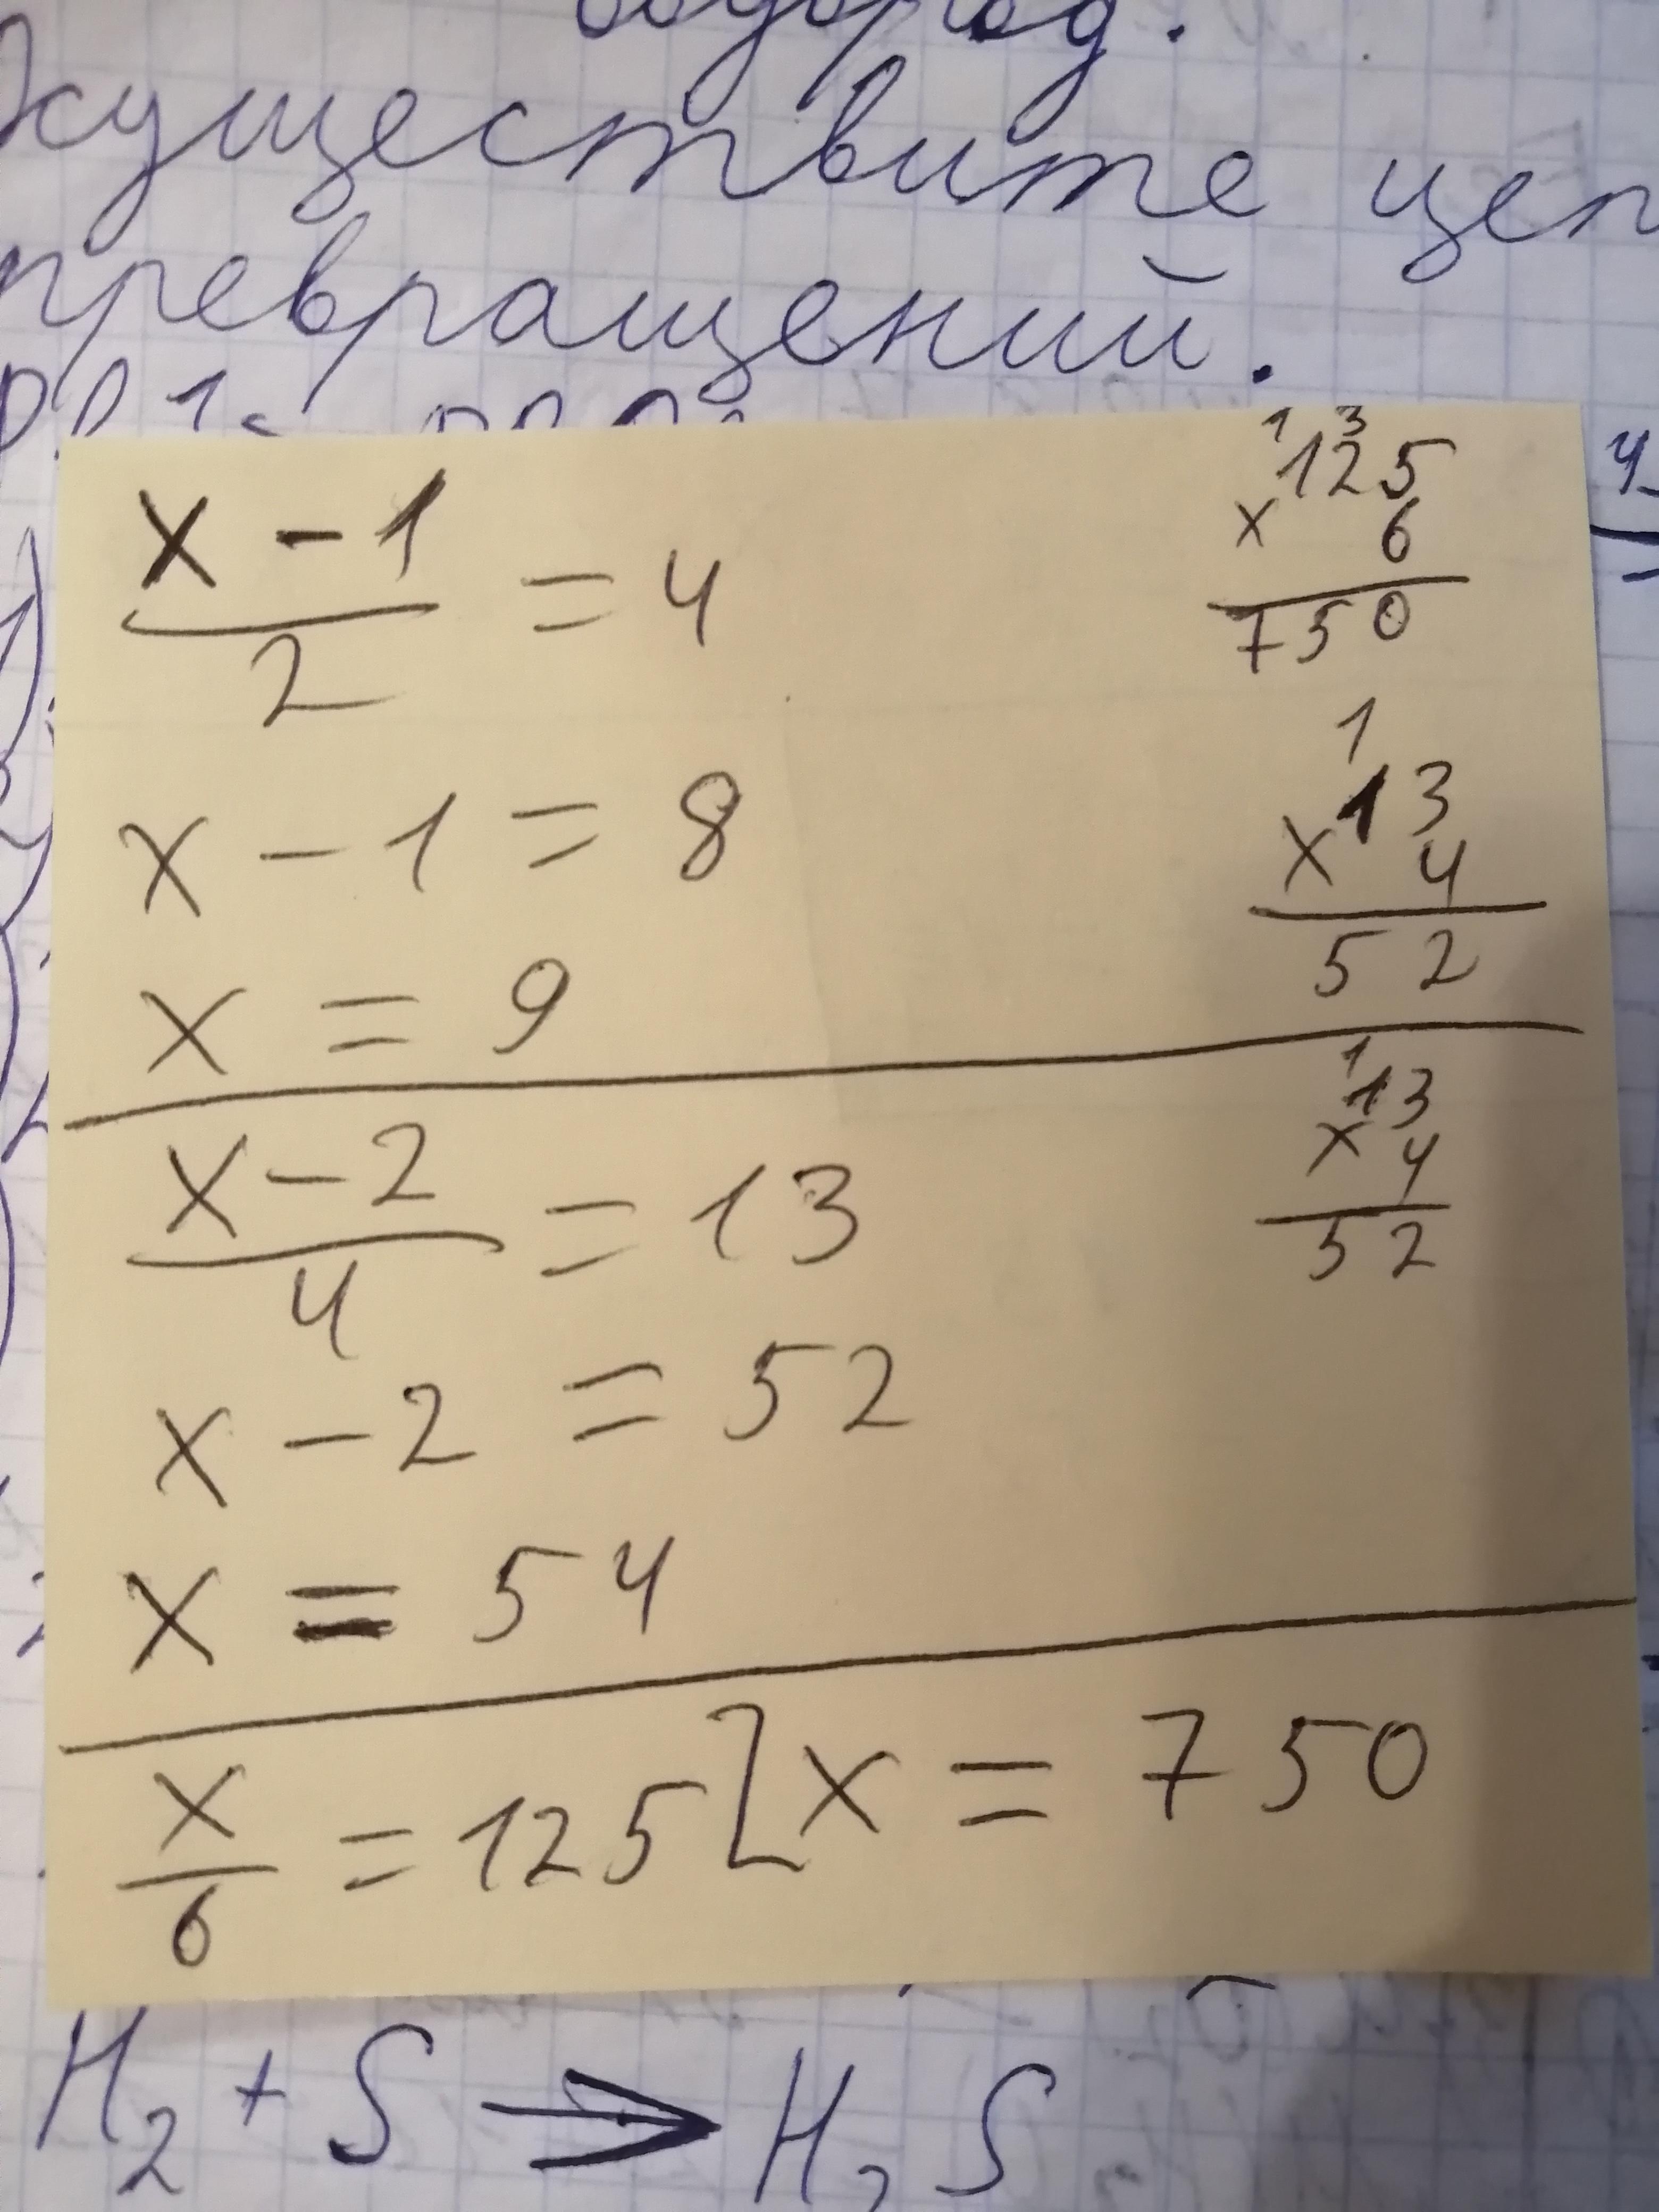 водород.
Осуществите цеп
превращений.
x - 1
―― = 4
2
x - 1 = 8
x = 9
1 3
125
x 6
750
1
13
x 4
52
x - 2
―― = 13
4
x - 2 = 52
x = 54
1
13
x 4
52
x
― = 125 [ x = 750
6
H₂ + S → H₂S